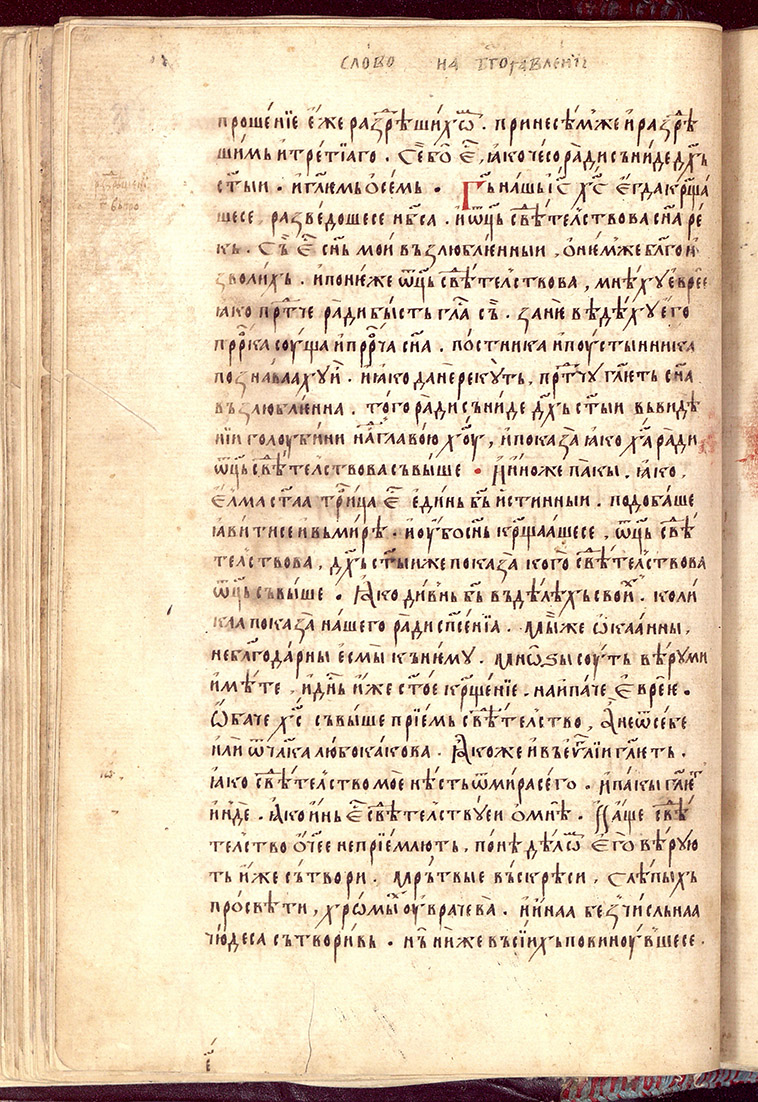 слово на бг҃оꙗвленїе
прошенїе є҆же разⷣрѣших ѿ . принесѣм же и҆ разⷣрѣ
шимь и҆ третїаго . Се́ бо є҆ⷭ҇ , ꙗ҆ко чесо ради съниде дх҃ь
ст҃ыи . и҆ гл҃юмь ѻ҆ семь . Гь҃ нашь і҆с҃ хс҃ є҆гда крⷭ҇ща
шесе , разведошесе нб҃са . и҆ ѿц҃ь свⷣѣтелствова сн҃а ре
кь . Съ є҆ⷭ҇ сн҃ь мои възлюблѥнныи , ѻ҆ нѥмже бл҃гои҆
зволихь . и҆ понѥже ѿц҃ь свⷣѣтелствова , мнѣхꙋ є҆врее
ꙗ҆ко прⷣтче ради бысть гла съ . занѥ вѣдѣхꙋ є҆го
прⷪ҇рка соуща и҆ прⷪ҇рча сн҃а . постника и҆ поустынника
познаваахꙋ и҆ . и҆ ꙗ҆ко да не рекꙋть , прⷣтчꙋ гл҃ѥть сн҃а
възлюблѥнна . того ради съниде дх҃ь ст҃ыи вь видѣ
нїи голоубини наⷣ главою хв҃ꙋ , и҆ показа ꙗ҆ко ха҃ ради
ѿц҃ь свⷣѣтелствова съвыше . И҆ ино же пакы . ꙗ҆ко ,
є҆лма ст҃аа трⷪ҇ица є҆ⷭ҇ єдинь бь҃ и҆стинныи . подобаше
ꙗвитисе и҆ вь мирѣ . и҆ оубо сн҃ь крⷭ҇щаашесе , ѿц҃ь свⷣѣ
телствова , дх҃ь ст҃ыи же показа кого свⷣѣтелствова
ѿц҃ь съвыше . Ꙗ҆ко дивнь бь҃ въ дѣлѣхь своиⷯ . коли
каа показа нашего ради сп҃сенїа . Мы же ѡ҆каанны ,
неблагодарны ѥсмы къ нѥмꙋ . Мнѡѕы соуть вѣрꙋ ми
и҆мѣте , и҆дн҃ь и҆же ст҃ое крⷭ҇щенїе . наипаче є҆врѥи .
Ѡ҆баче хс҃ съвыше прїемь свⷣѣтелство , А҆ не ѿ себе
и҆ли ѿ чл҃ка любо какова . Ꙗ҆коже и҆ въ єѵⷢ҇лїи гл҃ѥть .
ꙗ҆ко свⷣѣтелство моє нѣсть ѿ мира сего . и҆ пакы гл҃ѥⷮ
и҆нде . ꙗ҆ко и҆нь є҆ⷭ҇ свⷣѣтелствꙋеи ѻ҆ мнѣ . И҆ аще свⷣѣ
телство ѻ҆ч҃ее не прїемлють , понѣ дѣлѡⷨ є҆го вѣрꙋю
ть и҆же сътвори . Мрътвые въскрѣси , Слѣпыхь
просвети , хрѡмыⷯ оуврачева . и҆ и҆наа безчисльнаа
чюдеса сътворивь . нь҃ ниже въ сїих повиноувшесе .